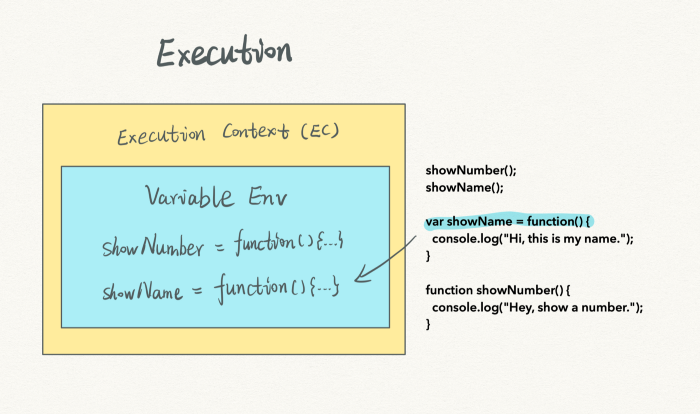 Execution
Execution Context (EC)
Variable Env
showNumber = function(){...}
showName = function(){...}
showNumber();
showName();
var showName = function() {
console.log("Hi, this is my name.");
}
function showNumber() {
console.log("Hey, show a number.");
}